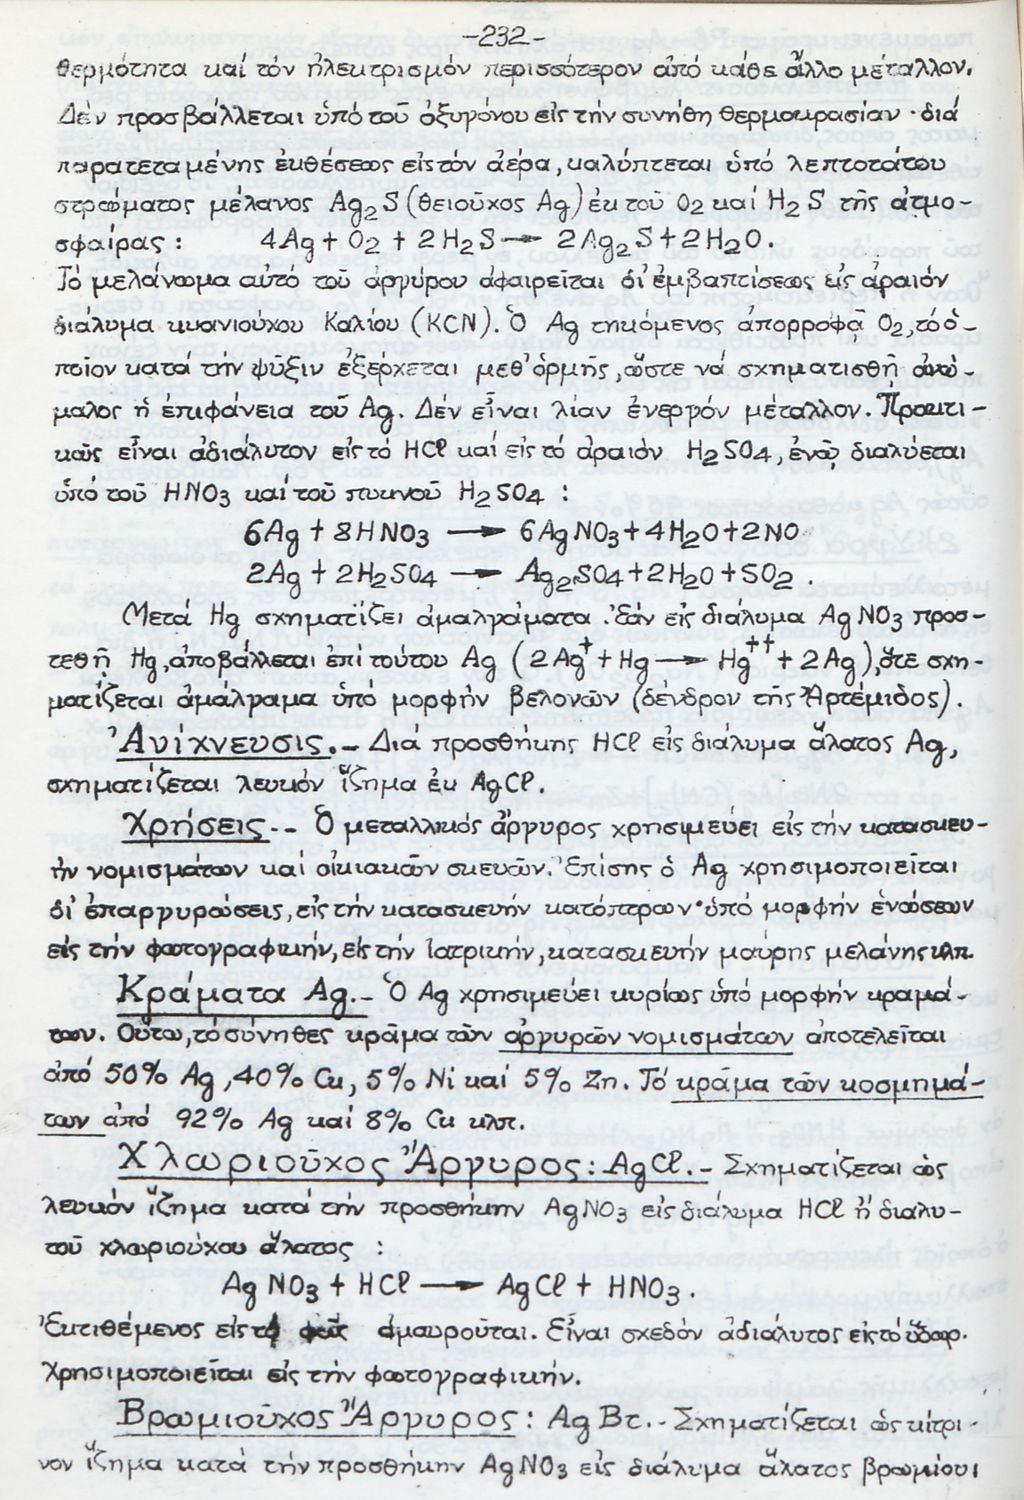 -232-
θερμότητα καί τόν ἠλεκτρισμόν περισσότερον ἀπό κάθε ἄλλο μέταλλον.
Δέν προσβάλλεται ὑπό τοῦ ὀξυγόνου εἰς τήν συνήθη θερμοκρασίαν· διά
παρατεταμένης ἐκθέσεως εἰς τόν ἀέρα, καλύπτεται ὑπό λεπτοτάτου
στρώματος μέλανος Ag₂S (θειοῦχος Ag) ἐκ τοῦ O₂ καί H₂S τῆς ἀτμο-
σφαίρας : 4Ag + O₂ + 2H₂S → 2Ag₂S + 2H₂O.
Τό μελάνωμα αὐτό τοῦ ἀργύρου ἀφαιρεῖται δι' ἐμβαπτίσεως εἰς ἀραιόν
διάλυμα κυανιούχου Καλίου (KCN). Ὁ Ag τηκόμενος ἀπορροφᾶ O₂, τό ὁ-
ποῖον κατά τήν ψῦξιν ἐξέρχεται μεθ' ὁρμῆς, ὥστε νά σχηματισθῆ ἀνώ-
μαλος ἡ ἐπιφάνεια τοῦ Ag. Δέν εἶναι λίαν ἐνεργόν μέταλλον. Πρακτι-
κῶς εἶναι ἀδιάλυτον εἰς τό HCl καί εἰς τό ἀραιόν H₂SO₄, ἐνῶ διαλύεται
ὑπό τοῦ HNO₃ καί τοῦ πυκνοῦ H₂SO₄ :
6Ag + 8HNO₃ → 6AgNO₃ + 4H₂O + 2NO
2Ag + 2H₂SO₄ → Ag₂SO₄ + 2H₂O + SO₂ .
Μετά Hg σχηματίζει ἀμαλγάματα. Ἐάν εἰς διάλυμα AgNO₃ προσ-
τεθῆ Hg, ἀποβάλλεται ἐπί τούτου Ag (2Ag⁺ + Hg → Hg⁺⁺ + 2Ag), ὅτε σχη-
ματίζεται ἀμάλγαμα ὑπό μορφήν βελονῶν (δένδρον τῆς Ἀρτέμιδος).
Ἀνίχνευσις.- Διά προσθήκης HCl εἰς διάλυμα ἅλατος Ag,
σχηματίζεται λευκόν ἵζημα ἐκ AgCl.
Χρήσεις.- Ὁ μεταλλικός ἄργυρος χρησιμεύει εἰς τήν κατασκευ-
ήν νομισμάτων καί οἰκιακῶν σκευῶν. Ἐπίσης ὁ Ag χρησιμοποιεῖται
δι' ἐπαργυρώσεις, εἰς τήν κατασκευήν κατόπτρων· ὑπό μορφήν ἑνώσεων
εἰς τήν φωτογραφικήν, εἰς τήν Ἰατρικήν, κατασκευήν μαύρης μελάνης κλπ.
Κράματα Ag.- Ὁ Ag χρησιμεύει κυρίως ὑπό μορφήν κραμά-
των. Οὕτω, τό σύνηθες κρᾶμα τῶν ἀργυρῶν νομισμάτων ἀποτελεῖται
ἀπό 50% Ag, 40% Cu, 5% Ni καί 5% Zn. Τό κρᾶμα τῶν κοσμημά-
των ἀπό 92% Ag καί 8% Cu κλπ.
Χλωριοῦχος Ἄργυρος: AgCl.- Σχηματίζεται ὡς
λευκόν ἵζημα κατά τήν προσθήκην AgNO₃ εἰς διάλυμα HCl ἤ διαλυ-
τοῦ χλωριούχου ἅλατος :
AgNO₃ + HCl → AgCl + HNO₃.
Ἐκτιθέμενος εἰς τό φῶς ἀμαυροῦται. Εἶναι σχεδόν ἀδιάλυτος εἰς τό ὕδωρ.
Χρησιμοποιεῖται εἰς τήν φωτογραφικήν.
Βρωμιοῦχος Ἄργυρος: AgBr.- Σχηματίζεται ὡς κίτρι-
νον ἵζημα κατά τήν προσθήκην AgNO₃ εἰς διάλυμα ἅλατος βρωμίου: